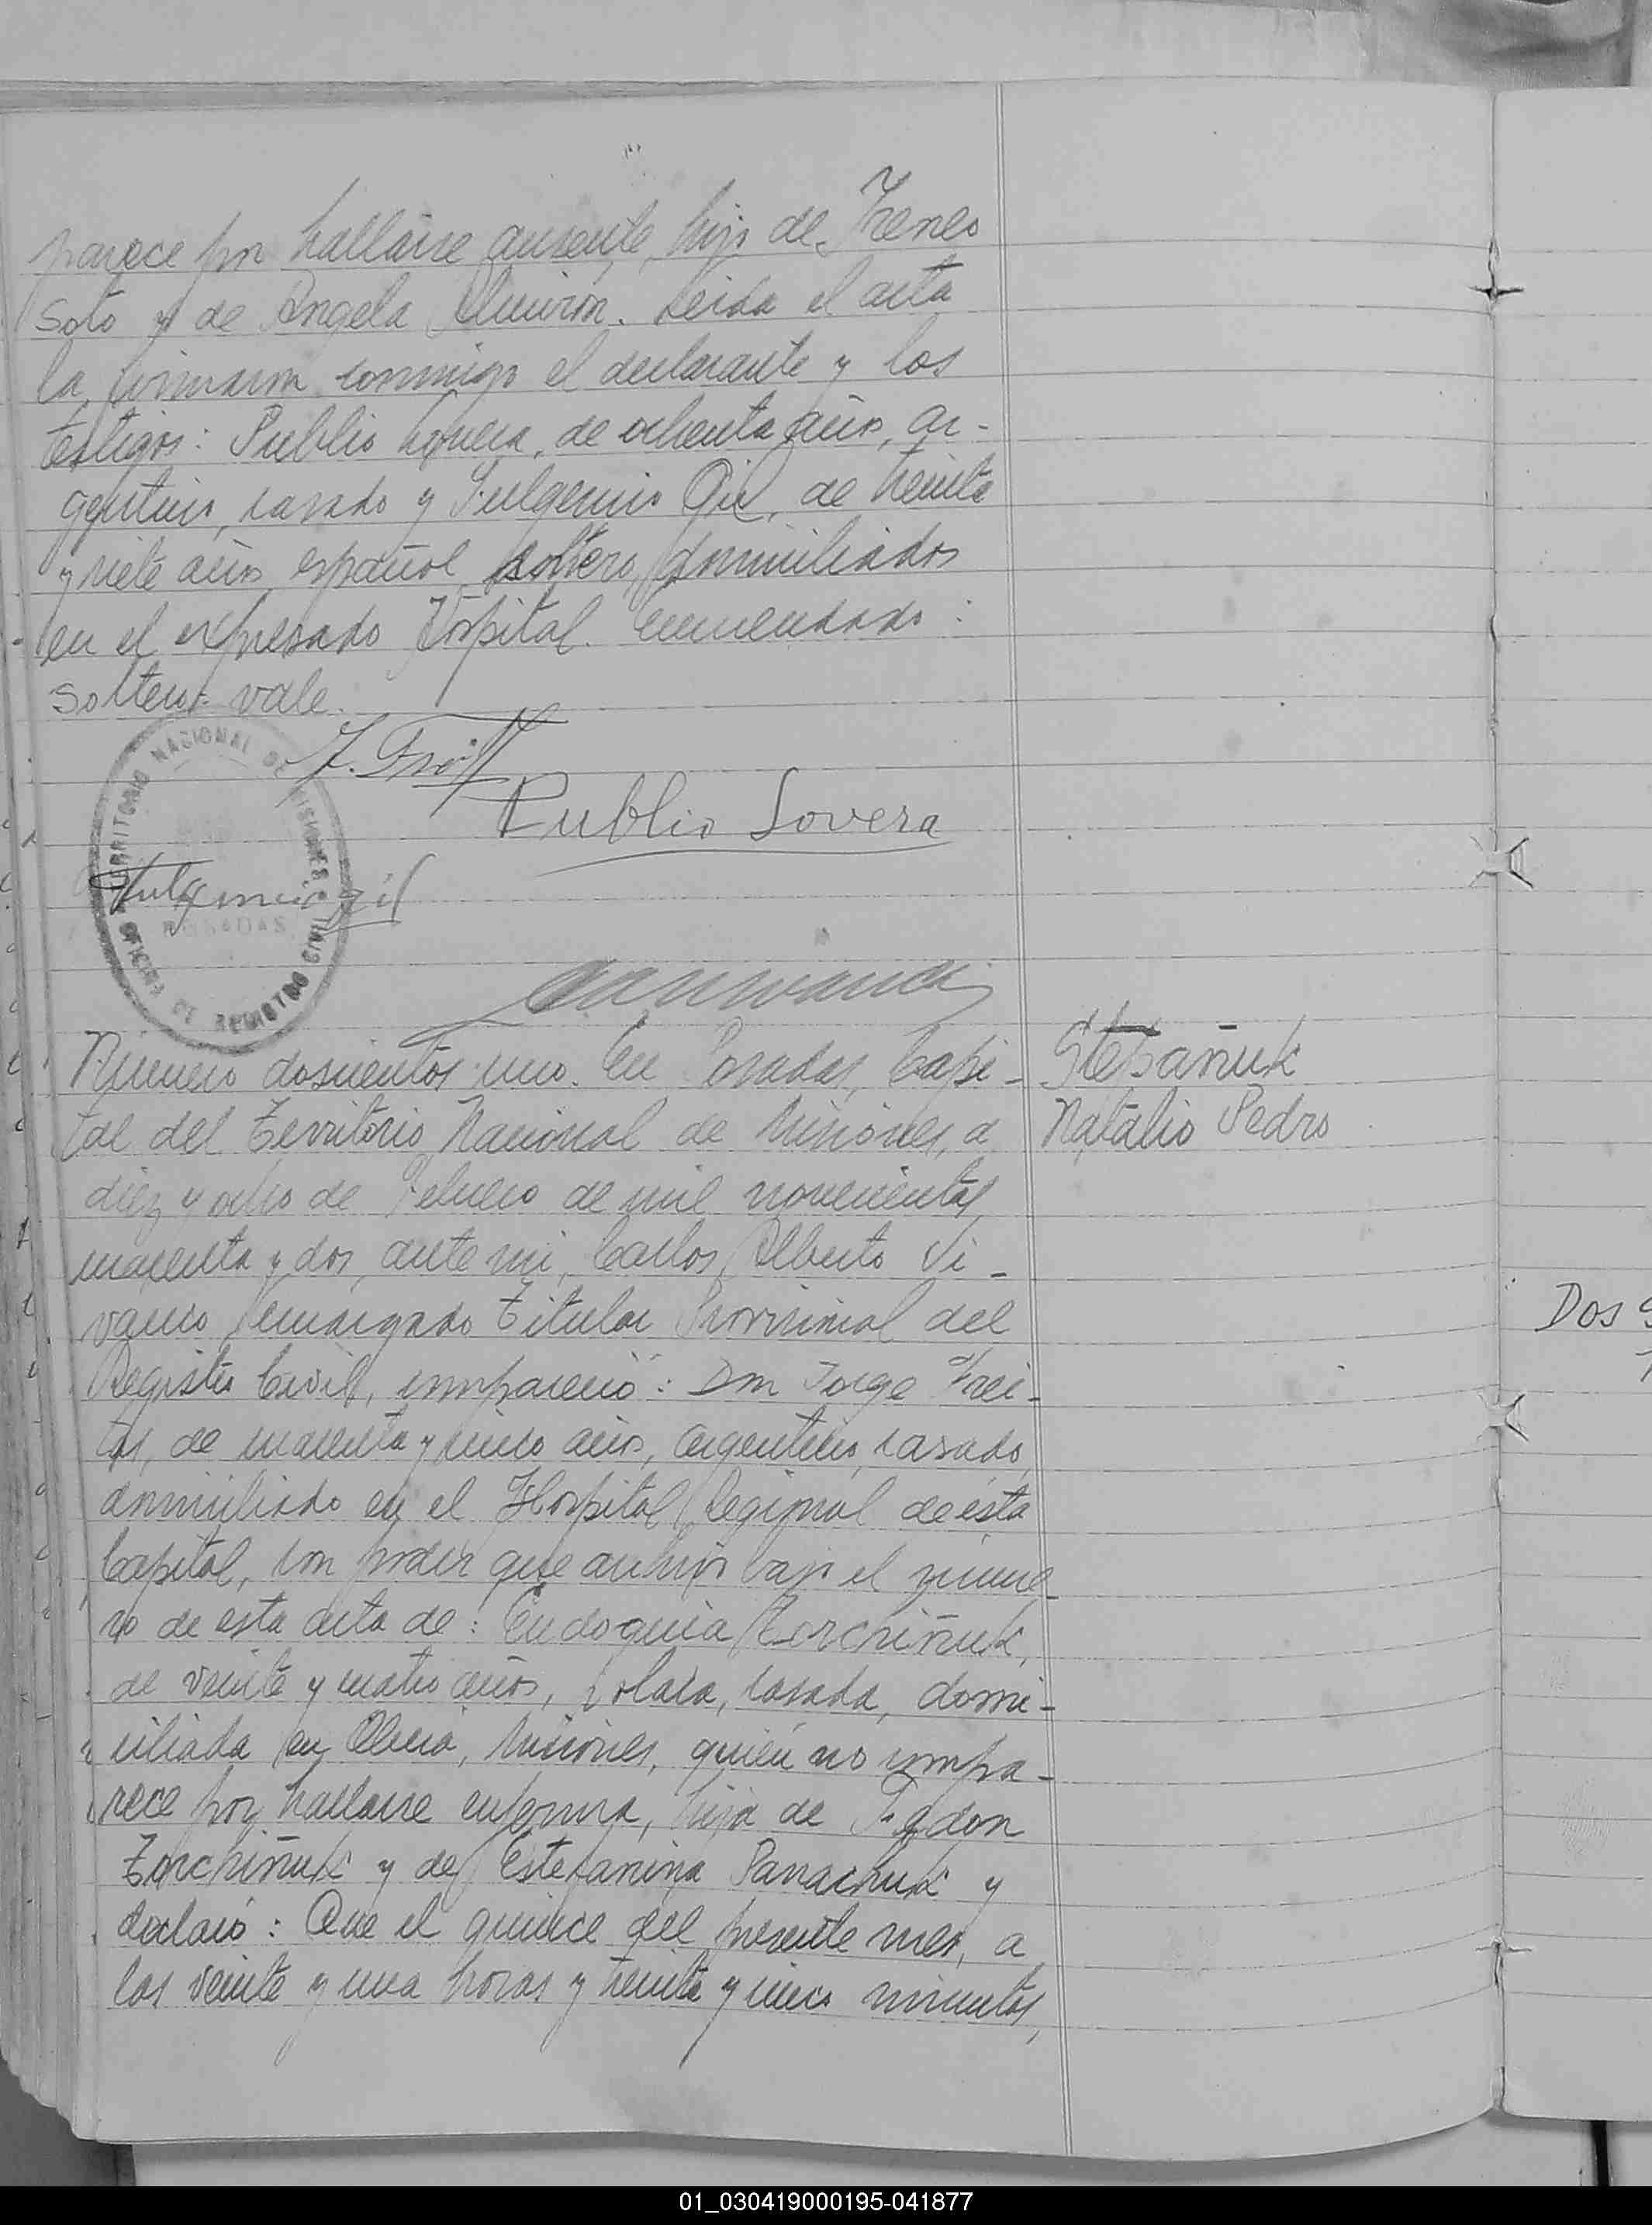 parece por hallarse ausente, hijo de Ireneo
Soto y de Angela Almirón. Leida el acta
la firmaron conmigo el declarante y los
testigos: Publio Lovera, de ochenta años, ar-
gentino, casado y Fulgencio Gil, de treinta
y siete años, español, soltero, domiciliados
en el expresado Hospital. Enmendado:
soltero: vale.
TERRITORIO NACIONAL DE MISIONES
Publio Lovera
Fulgencio Gil
POSADAS
OFICINA DE REGISTRO CIVIL
Número doscientos uno. En Posadas, Capi-
tal del Territorio Nacional de Misiones, a
diez y ocho de Febrero de mil novecientos
cuarenta y dos, ante mi, Carlos Alberto Vi-
vanco Encargado Titular Provisional del
Registro Civil, compareció: Don Jorge Frei-
tas, de cuarenta y cinco años, argentino, casado,
domiciliado en el Hospital Regional de ésta
Capital, con poder que archivo bajo el núme-
ro de esta acta de: Eudoquia Zorchiñuk,
de veinte y cuatro años, polaca, casada, domi-
ciliada en Oberá, Misiones, quién no compa-
rece por hallarse enferma, hija de Fadon
Zorchiñuk y de Estefanina Panachuk y
declaró: Que el quince del presente mes, a
las veinte y una horas y treinta y cinco minutos,
Stepañuk
Natalio Pedro
Dos
01_030419000195-041877